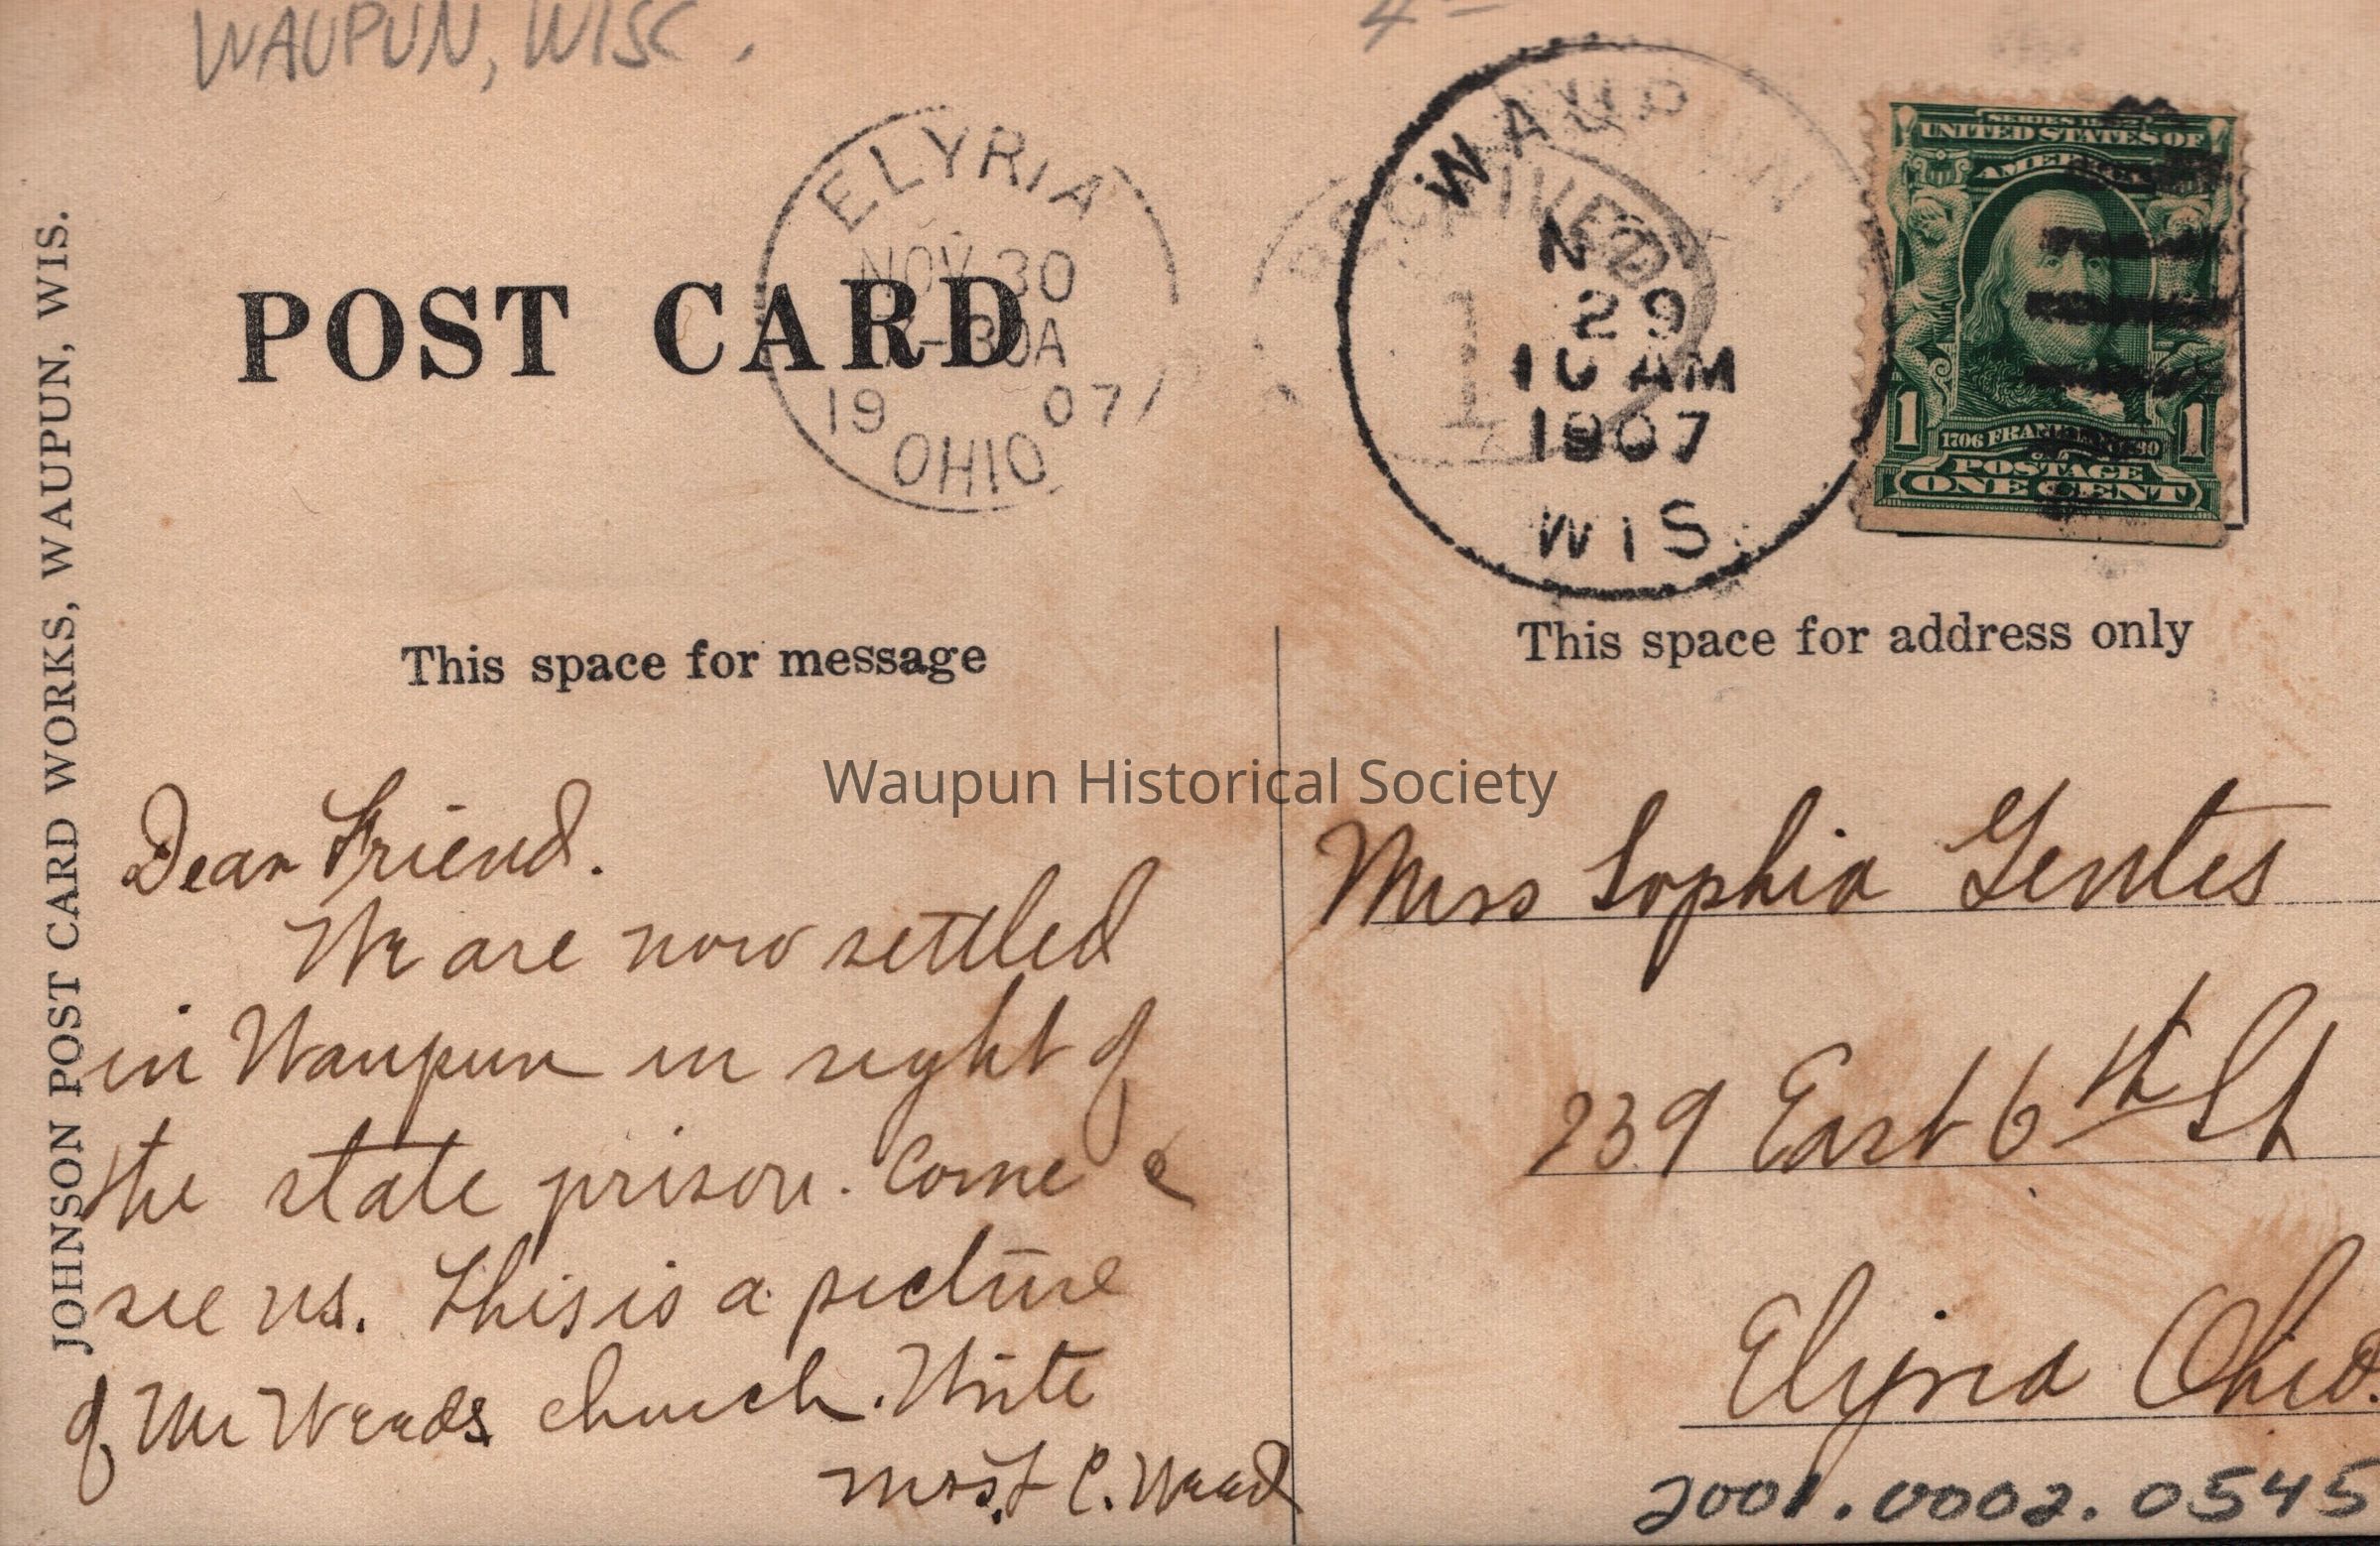 WAUPUN, WISC.
POST CARD
ELYRIA
NOV 30
30A
1907
OHIO
RECEIVED
WAUPUN
N
29
10 AM
1907
WIS.
UNITED STATES OF
AMERICA
1 1
POSTAGE
ONE CENT
JOHNSON POST CARD WORKS, WAUPUN, WIS.
This space for message
This space for address only
Waupun Historical Society
Dear Friend.
We are now settled
in Waupun in sight of
the state prison. Come &
see us. This is a picture
of Mr Weeds church. Write
C. Weed
Miss Sophia Gentes
239 East 6th St
Elyria Ohio.
2001.0002.0545